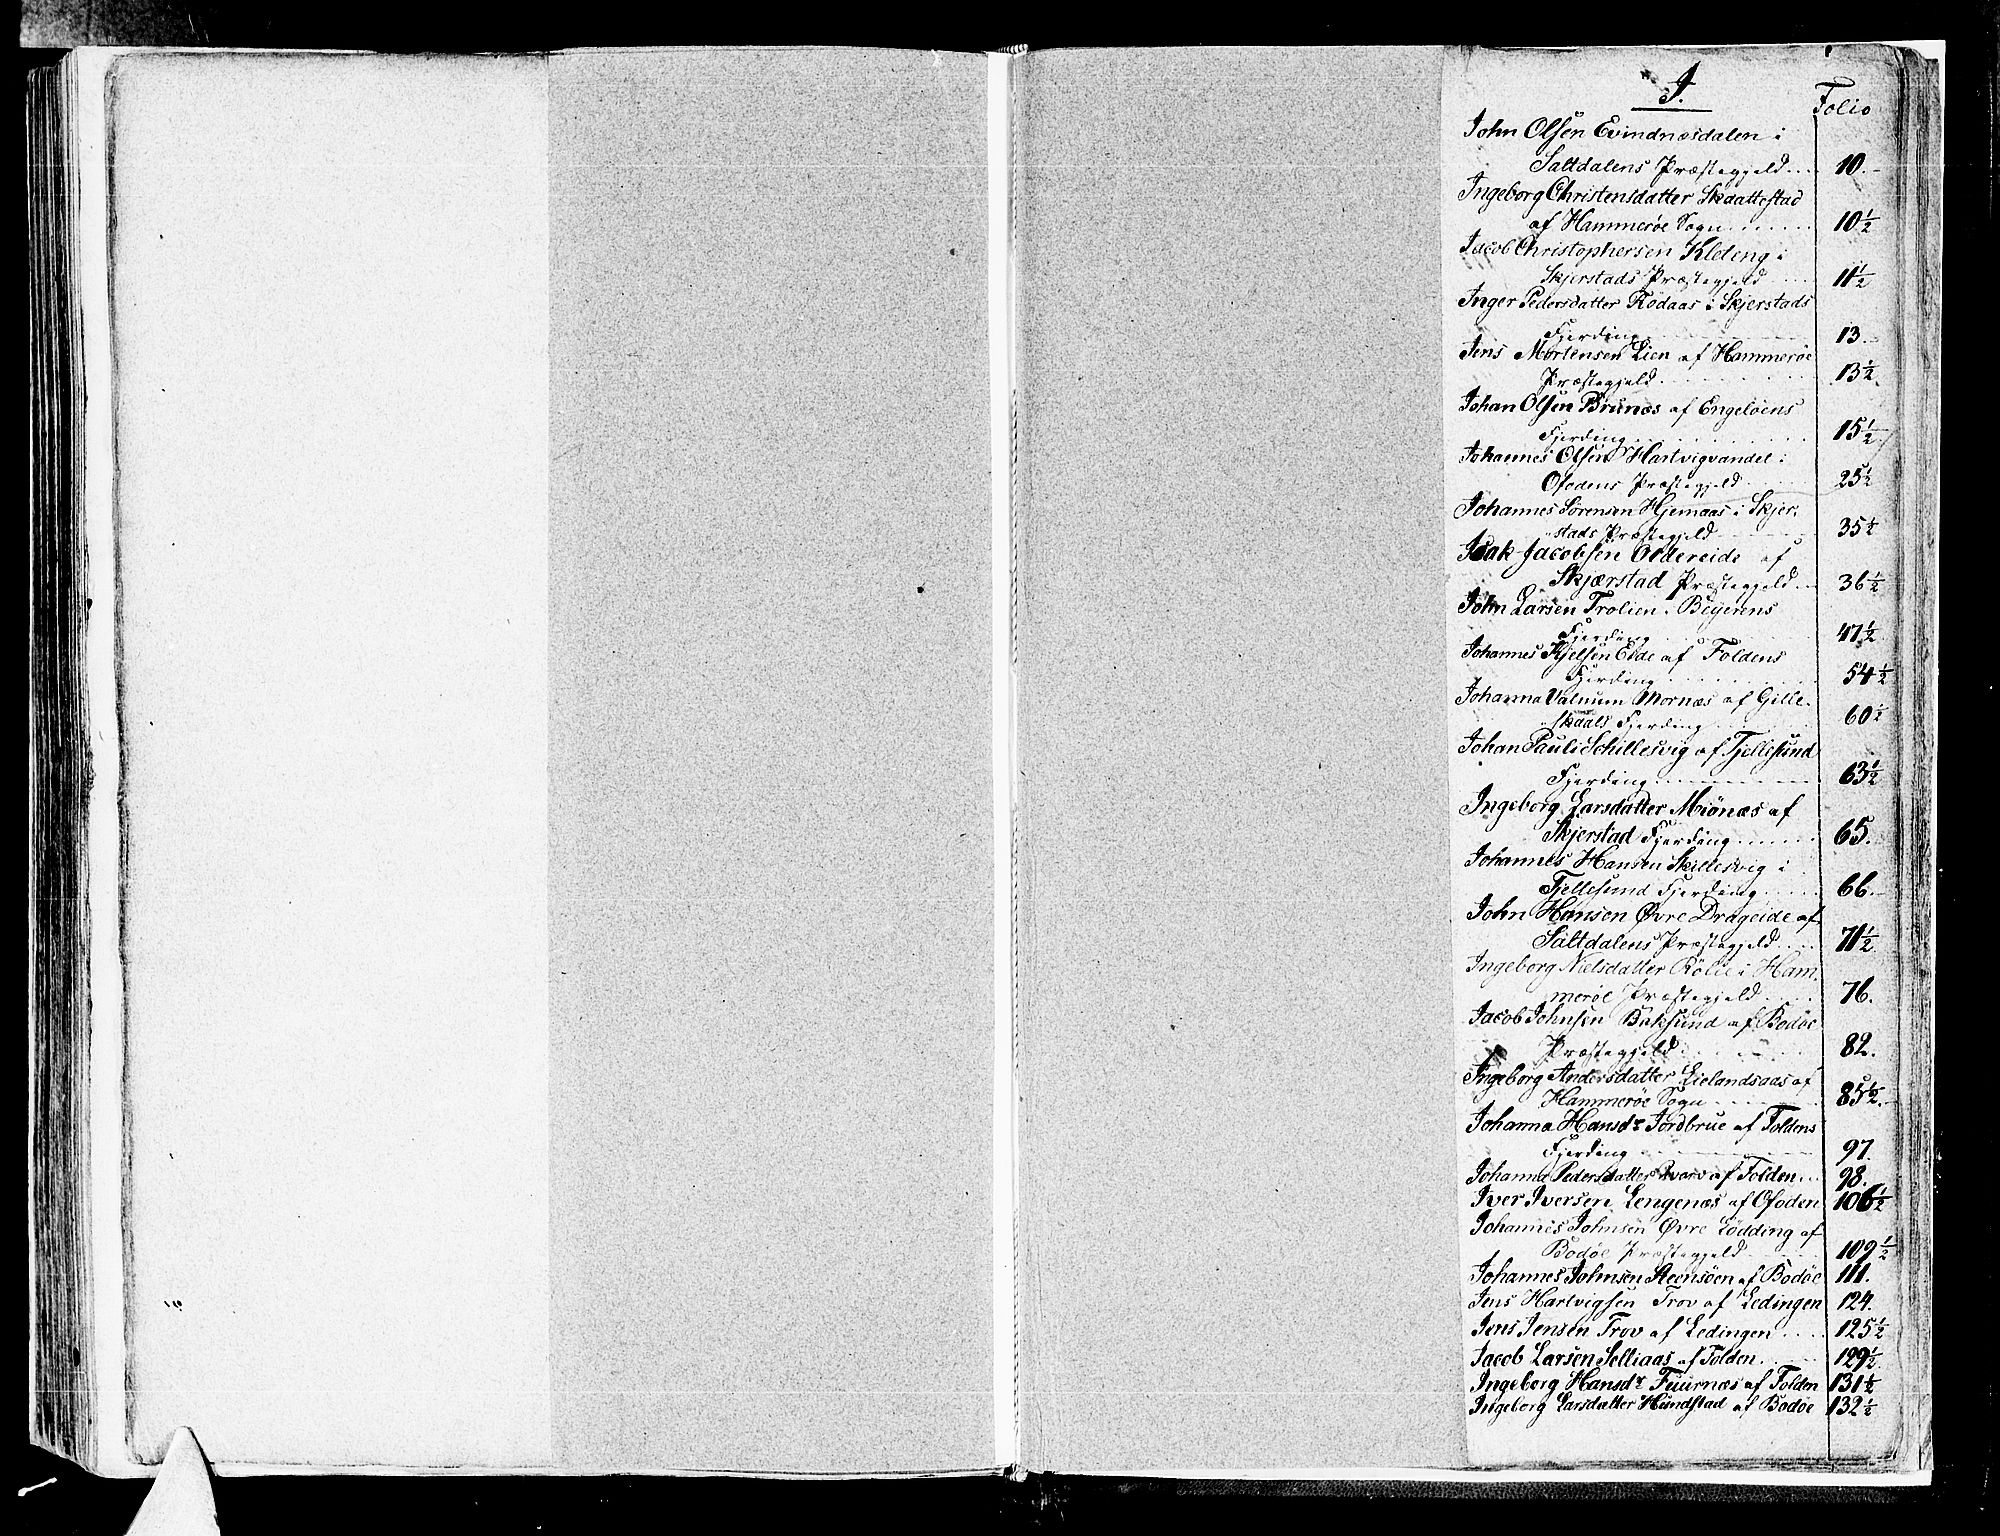 J.
Folio
John Olsen Evindnæsdalen i
Saltdalens Præstegjeld . . . 10.
Ingeborg Christensdatter Skdattestad
af Hammerøe Sogn . . . . . . 10 1/2
Jacob Christophersen Kleteng i
Skjerstads Præstegjeld . . . 11 1/2
Inger Pedersdatter Rödaas i Skjerstads
Fjerding . . . . . . 13.
Jens Mortensen Lien af Hammerøe
Præstegjeld . . . . . . 13 1/2.
Johan Olsen Brunæs af Engelöens
Fjerding . . . . . . 15 1/2
Johannes Olsen Hartvigvandet i
Ofodens Præstegjeld . . . . 25 1/2
Johannes Sørensen Hjemaas i Skjer,
stads Præstegjeld . . . . 35 1/2
Isak Jacobsen Oldereide af
Skjærstad Præstegjeld . . . 36 1/2
John Larsen Trolien i Beyerens
Fjerding . . . . . . 47 1/2
Johannes Kjelsen Eide af Foldens
Fjerding . . . . . . 54 1/2
Johanna Valnum Mornæs af Gille,
skaals Fjerding . . . . . 60 1/2
Johan Pauli Schillesvig af Tjellesund
Fjerding . . . . . . 63 1/2
Ingeborg Larsdatter Miönæs af
Skjerstad Fjerding . . . . . 65.
Johannes Hansen Skillesvig i
Tjellesund Fjerding . . . . 66.
John Hansen Øvre Drageide af
Saltdalens Præstegjeld . . . 71 1/2
Ingeborg Nielsdatter Rölie i Ham,
merøe Præstegjeld . . . . 76.
Jacob Johnsen Baksund af Bodøe
Præstegjeld . . . . . . 82.
Ingeborg Andersdatter Lielandsaas af
Hammerøe Sogn . . . . . . 85 1/2.
Johanna Hansdr Jordbrue af Foldens
Fjerding . . . . . . 97.
Johanna Pedersdatter Qvarv af Folden . . . 98.
Iver Iversen Lengenæs af Ofoden 106 1/2
Johannes Johnsen Øvre Lødding af
Bodøe Præstegjeld . . . . . 109 1/2
Johannes Johnsen Reensöen af Bodøe 111.
Jens Hartvigsen Trov af Lødingen 124.
Jens Jensen Trov af Lødingen . . . . 125 1/2
Jacob Larsen Selliaas af Folden . . . . 129 1/2
Ingeborg Hansdr Fuurnæs af Folden 131 1/2
Ingeborg Larsdatter Hundstad af Bodøe 132 1/2